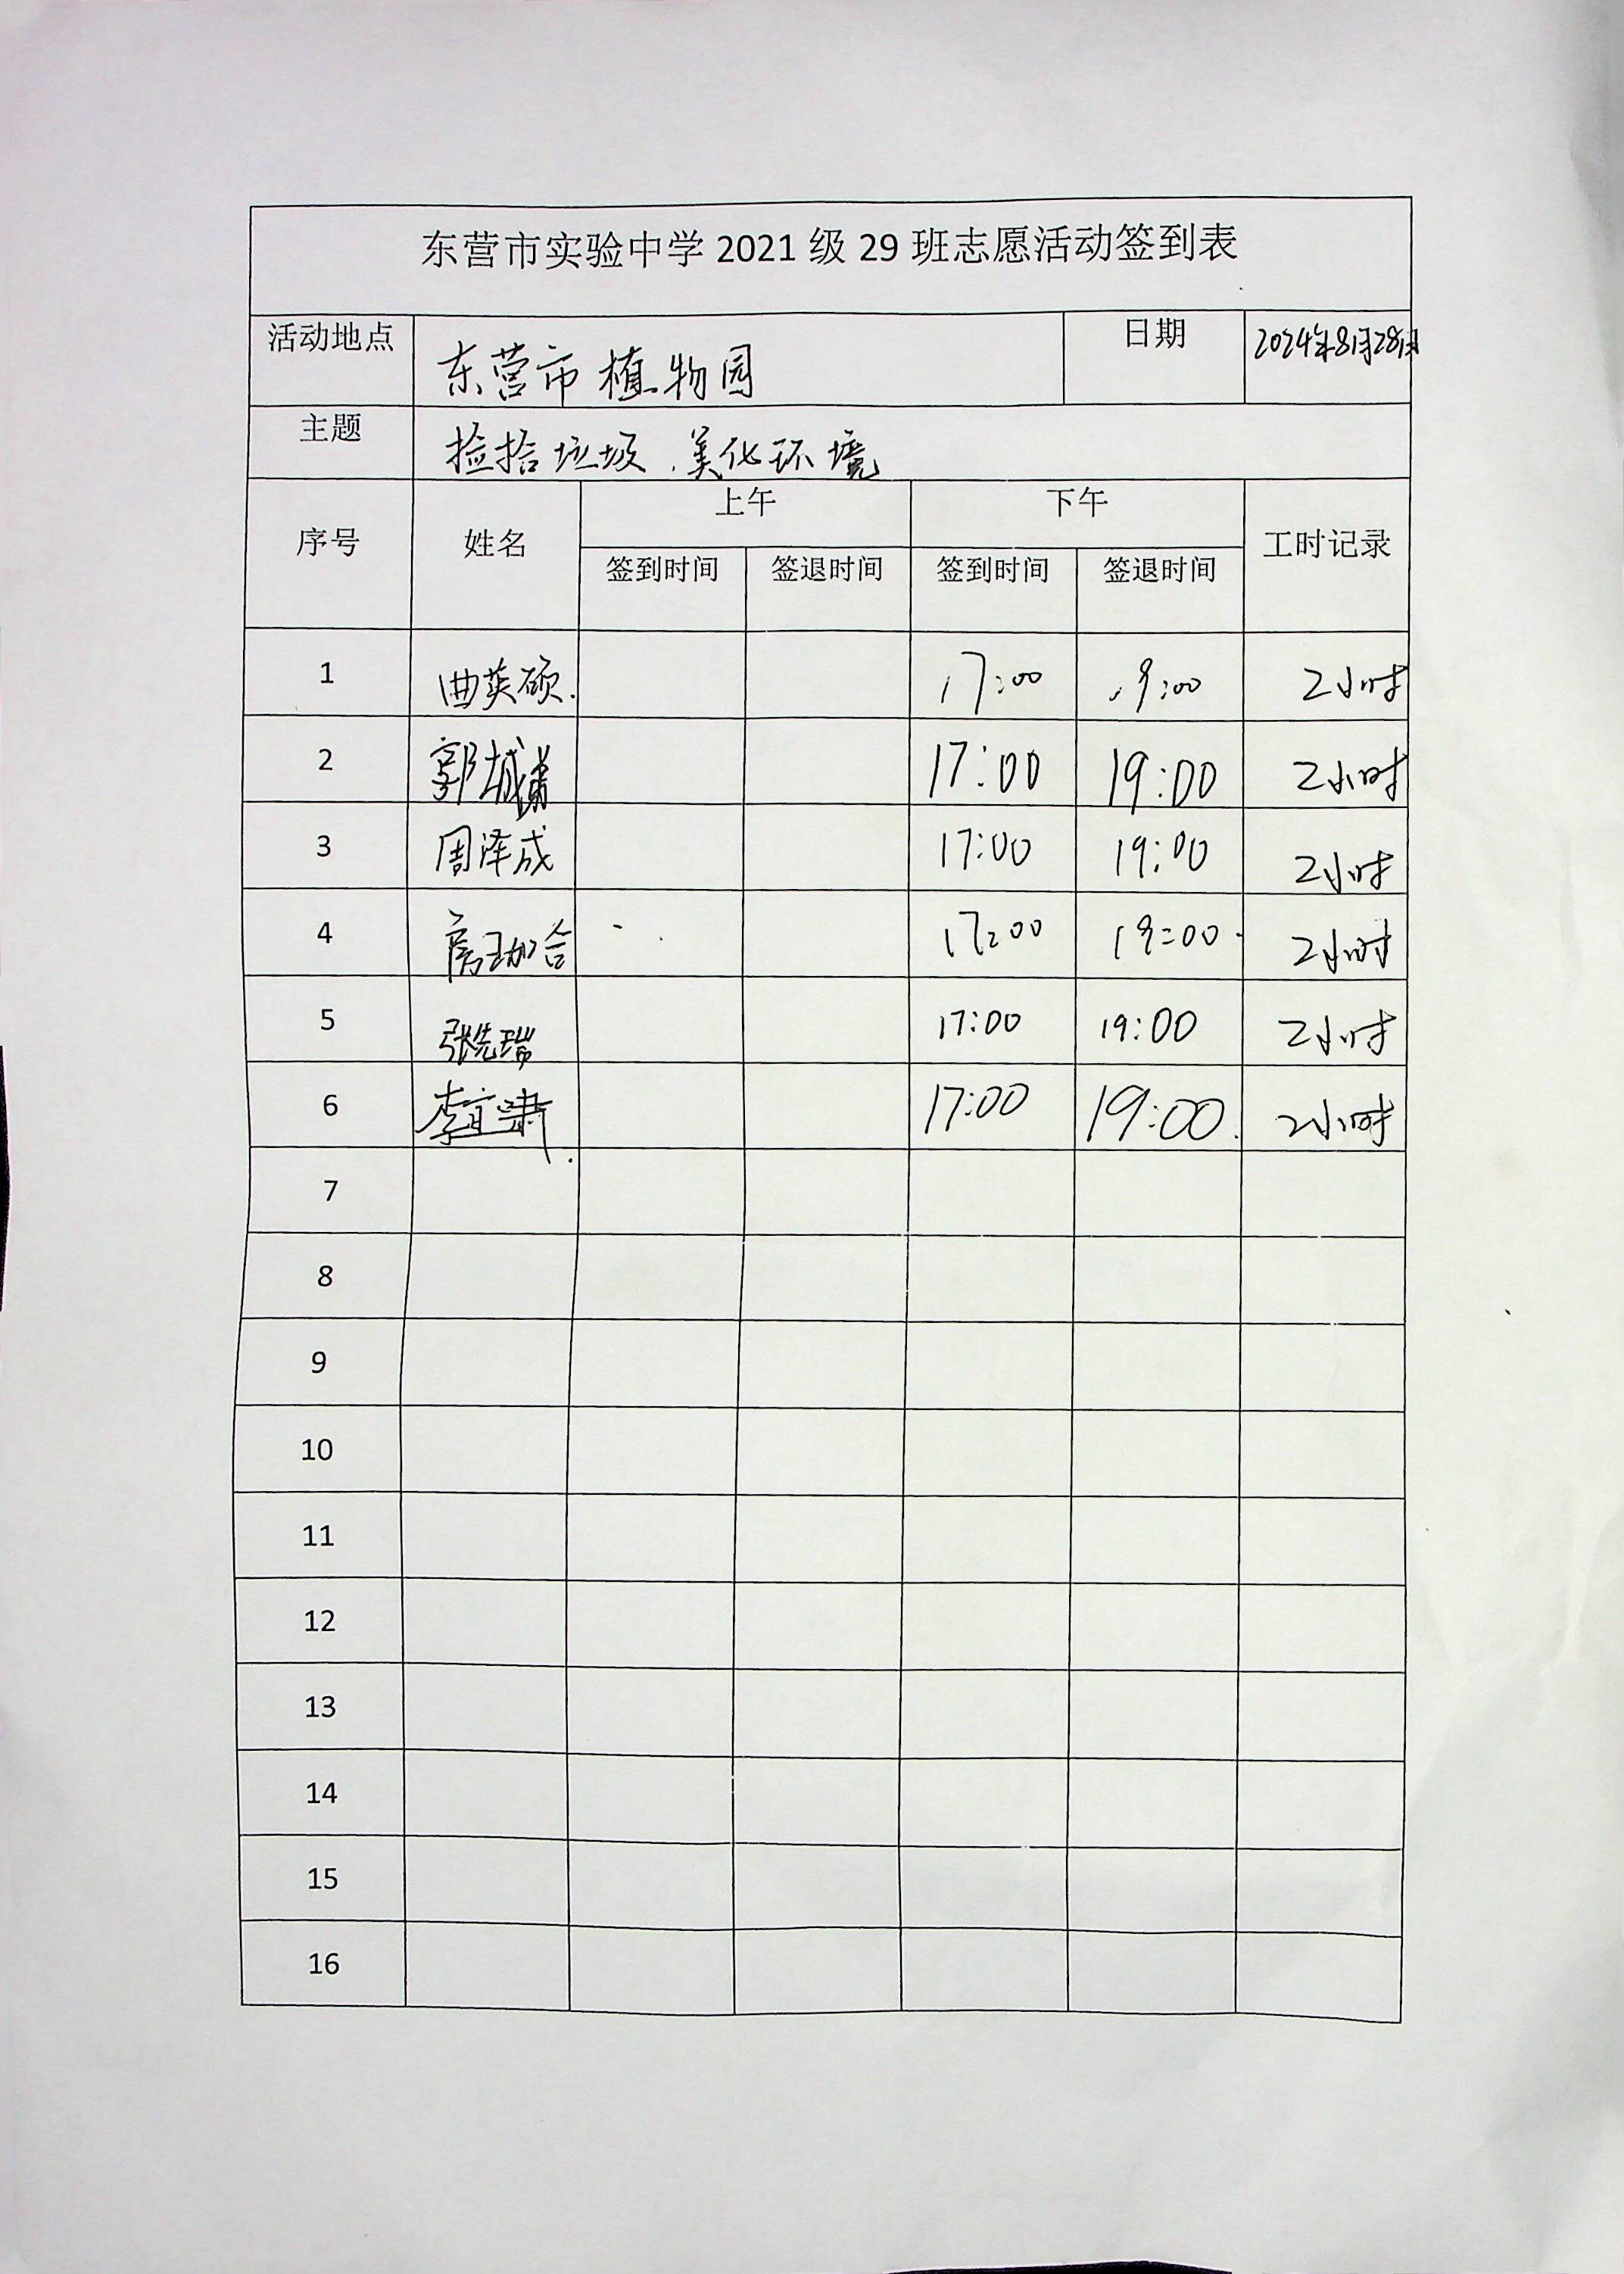 东营市实验中学 2021 级 29 班志愿活动签到表
活动地点 东营市植物园 日期 2024年8月28日
主题 捡拾垃圾、美化环境
序号 姓名 上午 下午 工时记录
签到时间 签退时间 签到时间 签退时间
1 曲英硕 17:00 19:00 2小时
2 郭城 17:00 19:00 2小时
3 周泽成 17:00 19:00 2小时
4 房珈合 17:00 19:00 2小时
5 张先瑞 17:00 19:00 2小时
6 李宜啸 17:00 19:00 2小时
7
8
9
10
11
12
13
14
15
16